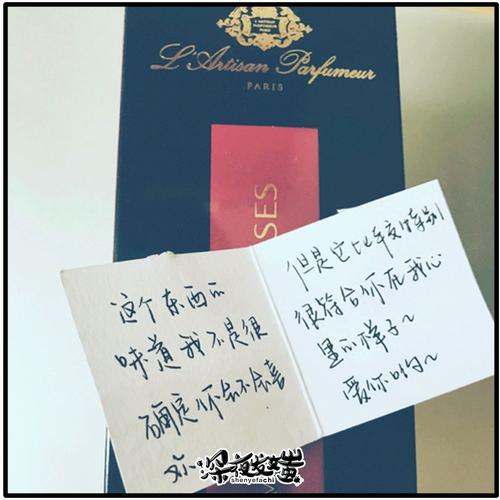 L'Artisan Parfumeur
PARIS
SES
这个东西的
味道我不是很
确定你会不会喜
欢~
但是它比较特别
很符合你在我心
里的样子~
爱你哟~
深夜发媸
shenyefachi